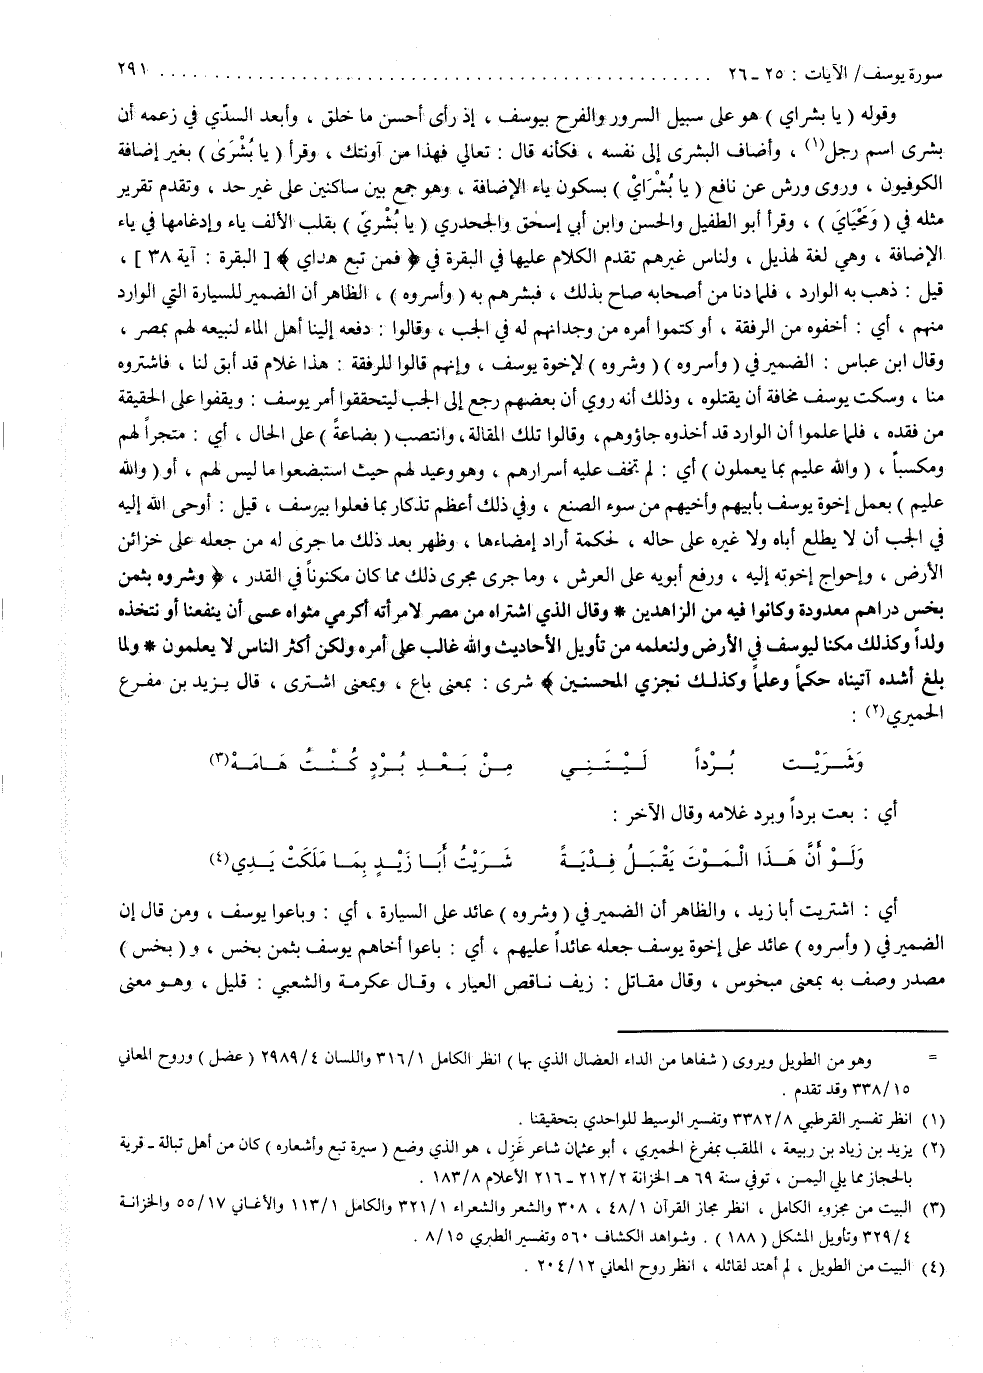 سورة يوسف/ الآيات : ٢٥ ـ ٢٦ . . . . . . . . . . . . . . . . . . . . . . . . . . . . . . . . . . . . . . . . . . ٢٩١
وقوله ( يا بشراي ) هو على سبيل السرور والفرح بيوسف ، إذ رأى أحسن ما خلق ، وأبعد السدّي في زعمه أن
بشرى اسم رجل(١) ، وأضاف البشرى إلى نفسه ، فكأنه قال : تعالي فهذا من آونتك ، وقرأ ( يا بُشْرَىٰ ) بغير إضافة
الكوفيون ، وروى ورش عن نافع ( يا بُشْرَايْ ) بسكون ياء الإضافة ، وهو جمع بين ساكنين على غير حد ، وتقدم تقرير
مثله في ( وَمَحْيَايْ ) ، وقرأ أبو الطفيل والحسن وابن أبي إسحق والجحدري ( يا بُشْرَيّ ) بقلب الألف ياء وإدغامها في ياء
الإضافة ، وهي لغة لهذيل ، ولناس غيرهم تقدم الكلام عليها في البقرة في ﴿ فمن تبع هداي ﴾ [ البقرة : آية ٣٨ ] ،
قيل : ذهب به الوارد ، فلما دنا من أصحابه صاح بذلك ، فبشرهم به ( وأسروه ) ، الظاهر أن الضمير للسيارة التي الوارد
منهم ، أي : أخفوه من الرفقة ، أو كتموا أمره من وجدانهم له في الجب ، وقالوا : دفعه إلينا أهل الماء لنبيعه لهم بمصر ،
وقال ابن عباس : الضمير في ( وأسروه ) ( وشروه ) لإخوة يوسف ، وإنهم قالوا للرفقة : هذا غلام قد أبق لنا ، فاشتروه
منا ، وسكت يوسف مخافة أن يقتلوه ، وذلك أنه روي أن بعضهم رجع إلى الجب ليتحققوا أمر يوسف : ويقفوا على الحقيقة
من فقده ، فلما علموا أن الوارد قد أخذوه جاؤوهم، وقالوا تلك المقالة، وانتصب ( بضاعةً ) على الحال ، أي : متجراً لهم
ومكسباً ، ( والله عليم بما يعملون ) أي : لم تخف عليه أسرارهم ، وهو وعيد لهم حيث استبضعوا ما ليس لهم ، أو ( والله
عليم ) بعمل إخوة يوسف بأبيهم وأخيهم من سوء الصنع ، وفي ذلك أعظم تذكار بما فعلوا بيوسف ، قيل : أوحى الله إليه
في الجب أن لا يطلع أباه ولا غيره على حاله ، لحكمة أراد إمضاءها ، وظهر بعد ذلك ما جرى له من جعله على خزائن
الأرض ، وإحواج إخوته إليه ، ورفع أبويه على العرش ، وما جرى مجرى ذلك مما كان مكنوناً في القدر ، ﴿ وشروه بثمن
بخس دراهم معدودة وكانوا فيه من الزاهدين * وقال الذي اشتراه من مصر لامرأته أكرمي مثواه عسى أن ينفعنا أو نتخذه
ولداً وكذلك مكنا ليوسف في الأرض ولنعلمه من تأويل الأحاديث والله غالب على أمره ولكن أكثر الناس لا يعلمون * ولما
بلغ أشده آتيناه حكماً وعلماً وكذلك نجزي المحسنين ﴾ شرى : بمعنى باع ، وبمعنى اشترى ، قال يزيد بن مفرع
الحميري(٢) :
وَشَرَيْت بُرْداً لَيْتَنِي مِنْ بَعْدِ بُرْدٍ كُنْتُ هَامَهْ(٣)
أي : بعت برداً وبرد غلامه وقال الآخر :
وَلَوْ أَنَّ هَذَا الْمَوْتَ يَقْبَلُ فِدْيَةً شَرَيْتُ أَبَا زَيْدٍ بِمَا مَلَكَتْ يَدِي(٤)
أي : اشتريت أبا زيد ، والظاهر أن الضمير في ( وشروه ) عائد على السيارة ، أي : وباعوا يوسف ، ومن قال إن
الضمير في ( وأسروه ) عائد على إخوة يوسف جعله عائداً عليهم ، أي : باعوا أخاهم يوسف بثمن بخس ، و ( بخس )
مصدر وصف به بمعنى مبخوس ، وقال مقاتل : زيف ناقص العيار ، وقال عكرمة والشعبي : قليل ، وهو معنى
= وهو من الطويل ويروى ( شفاها من الداء العضال الذي بها ) انظر الكامل ٣١٦/١ واللسان ٢٩٨٩/٤ ( عضل ) وروح المعاني
٣٣٨/١٥ وقد تقدم .
(١) انظر تفسير القرطبي ٣٣٨٢/٨ وتفسير الوسيط للواحدي بتحقيقنا .
(٢) يزيد بن زياد بن ربيعة ، الملقب بمفرغ الحميري ، أبو عثمان شاعر غَزِل ، هو الذي وضع ( سيرة تبع وأشعاره ) كان من أهل تبالة ـ قرية
بالحجاز مما يلي اليمن ، توفي سنة ٦٩ هـ الخزانة ٢١٢/٢ ـ ٢١٦ الأعلام ١٨٣/٨ .
(٣) البيت من مجزوء الكامل ، انظر مجاز القرآن ٤٨/١ ، ٣٠٨ والشعر والشعراء ٣٢١/١ والكامل ١١٣/١ والأغاني ٥٥/١٧ والخزانة
٣٢٩/٤ وتأويل المشكل ( ١٨٨ ) . وشواهد الكشاف ٥٦٠ وتفسير الطبري ٨/١٥ .
(٤) البيت من الطويل ، لم أهتد لقائله ، انظر روح المعاني ٢٠٤/١٢ .